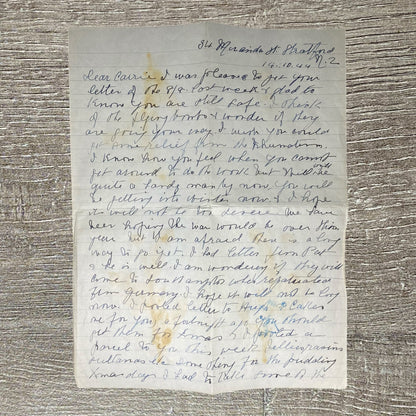 84 Miranda St Stratford
19.10.44 N.Z
Dear Carrie I was pleased to get your
letter of the 8/8 last week & glad to
know you are still safe. I think
of the flying bombs & wonder if they
are going your way I wish you could
get some relief from the rheumatism
I know how you feel when you cannot
get around to do the work but still only
quite a handy now You will
be getting into winter now & I hope
it will not be too severe We have
been hoping the war would be over this
year but I am afraid there is a long
way to go yet. I had letter from
& he is well I am wondering if they will
come to Southampton when repatriated
from Germany I hope it will not be long
now I posted letter to Hugh & Cakes
me for you a fortnight ago You should
get them for Xmas & I posted a
parcel to you this week raisins
sultanas & some thing for the pudding
Xmas day I had to take some of the